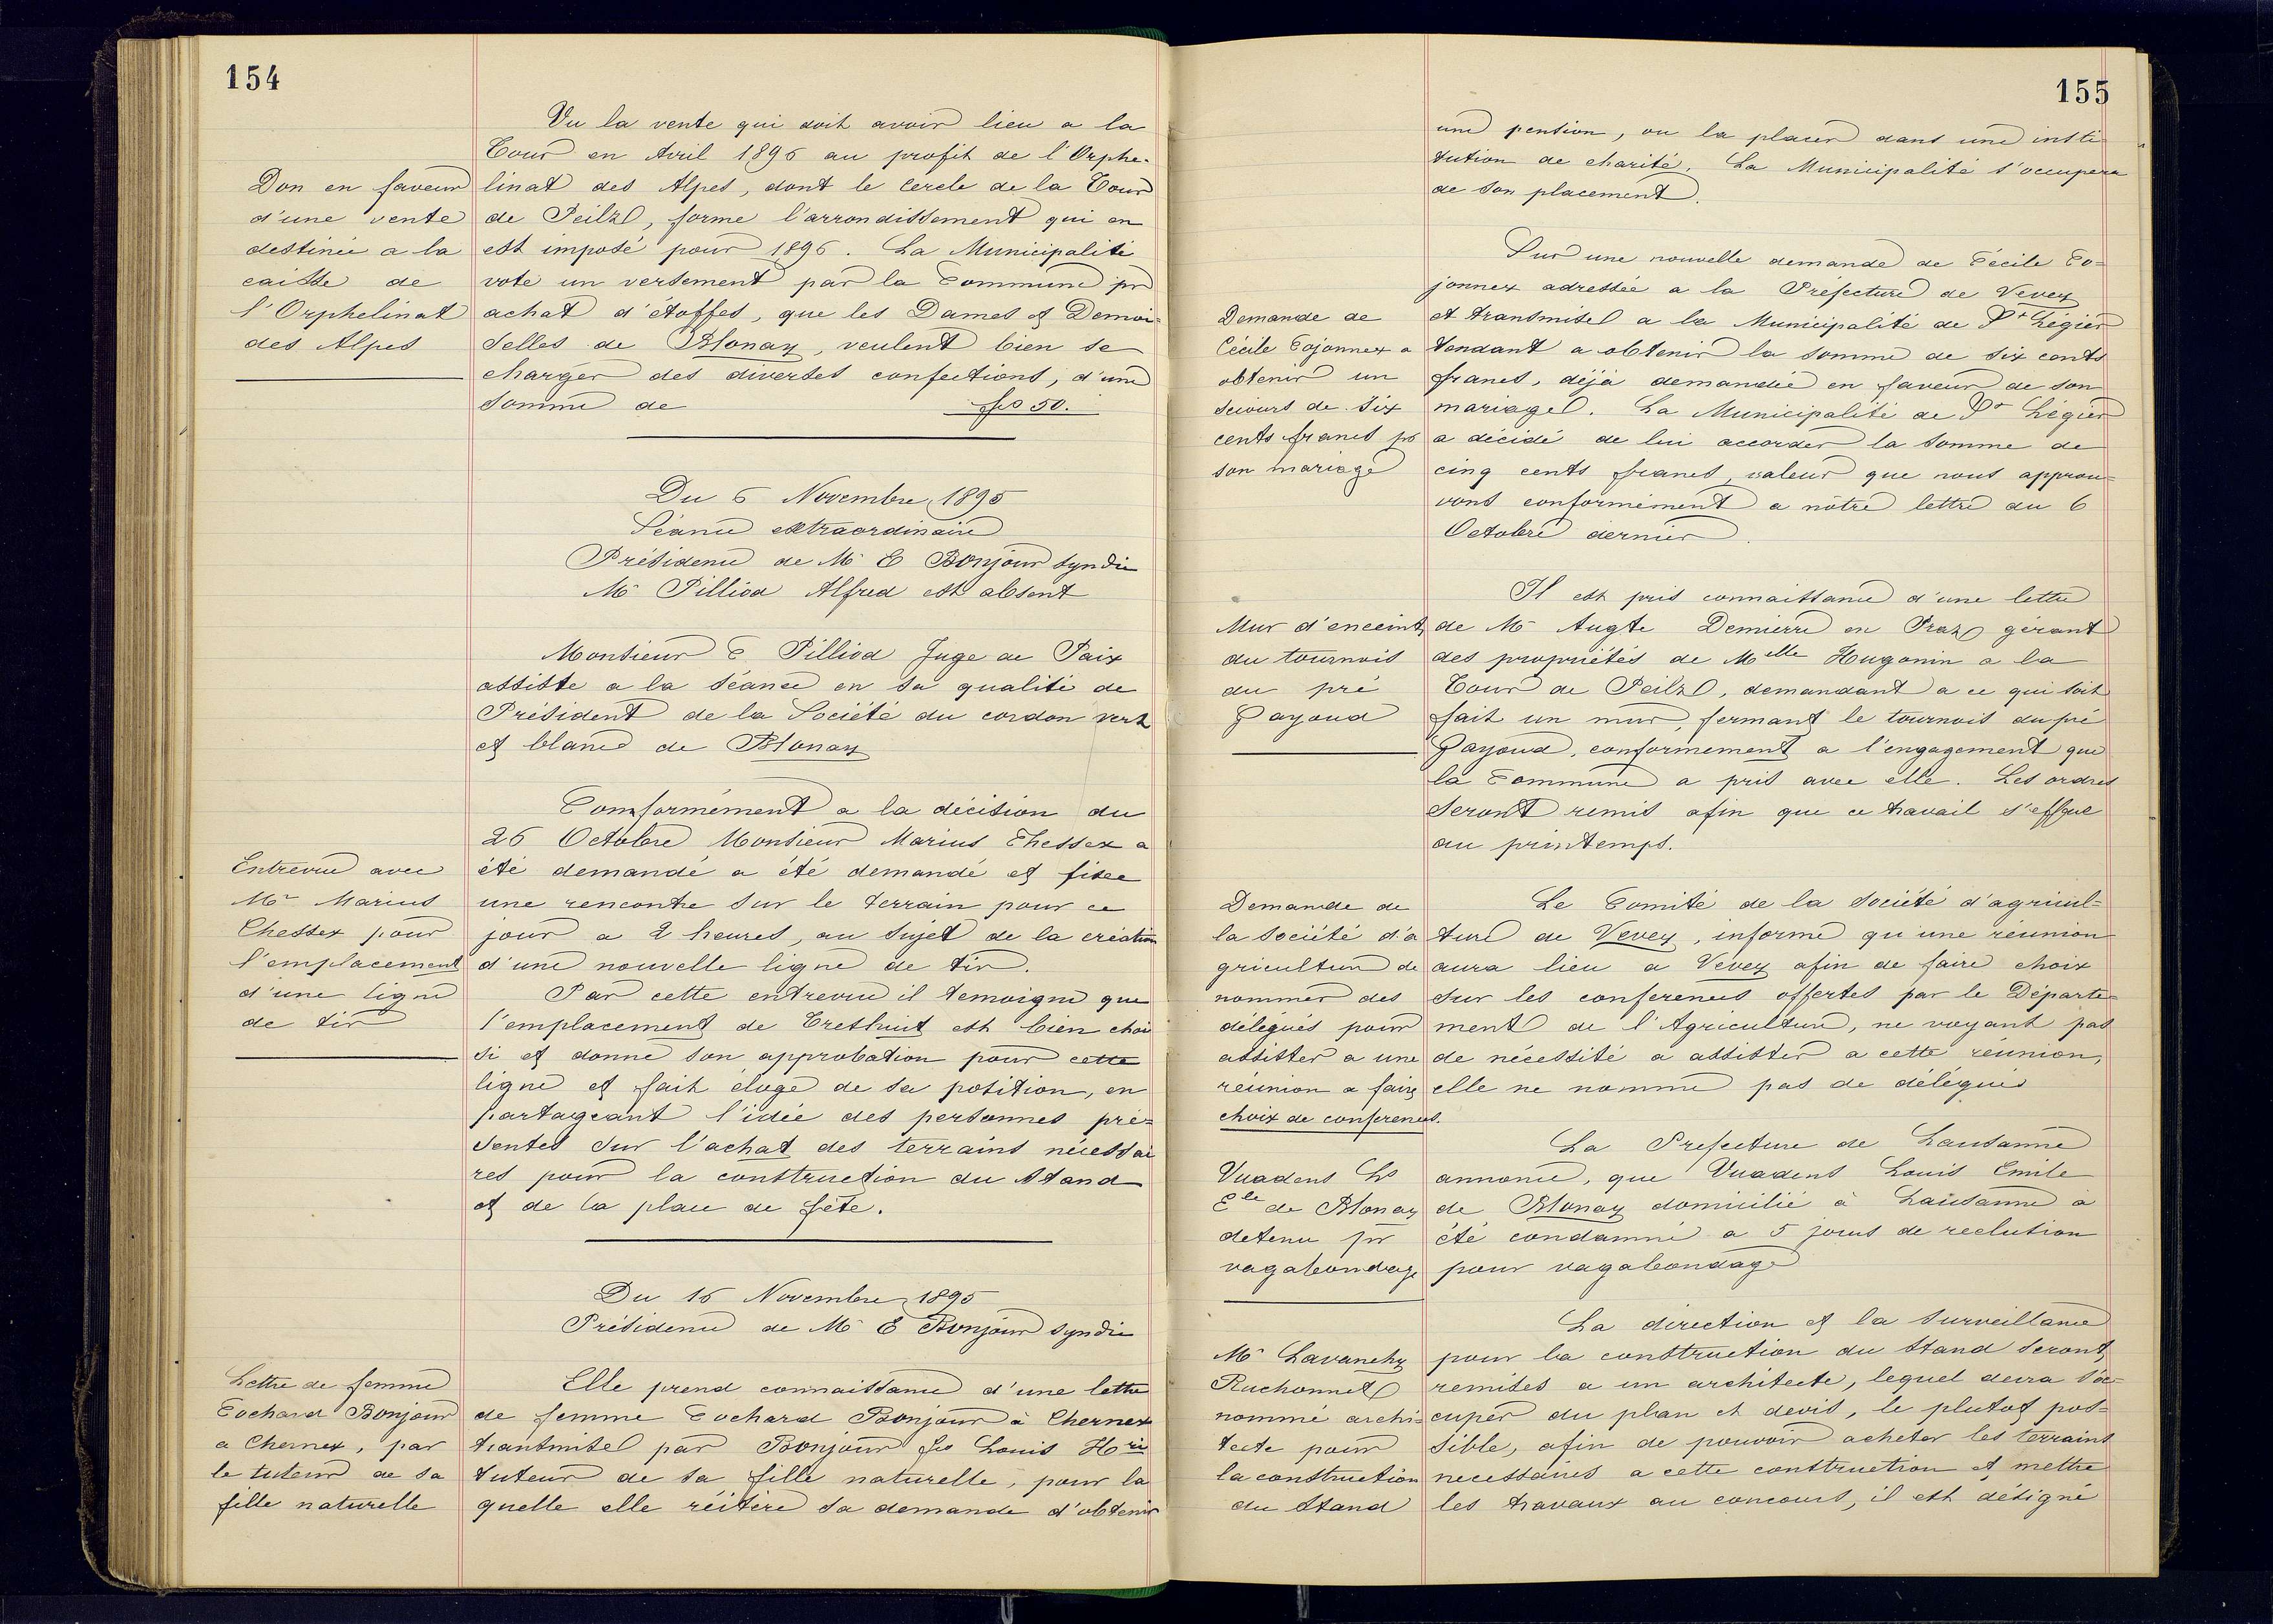 154
Vu la vente qui doit avoir lieu a la
Tour en Avril 1896 au profit de l'Orphe-
linat des Alpes, dont le cercle de la Tour
de Peilz, forme l'arrondissement qui en
est imposé pour 1896. La Municipalité
vote un versement par la Commune pr
achat d'étoffes, que les Dames et Demoi-
selles de Blonay, veulent bien se
charger des diverses confections, d'une
somme de frs 50.
Don en faveur
d'une vente
destinée a la
caisse de
l'Orphelinat
des Alpes
Du 6 Novembre 1895
Séance extraordinaire
Présidence de Mr E Bonjour syndic
Mr Pilliod Alfred est absent
Monsieur E Pilliod Juge de Paix
assiste a la séance en sa qualité de
Président de la Société du cordon vert
et blanc de Blonay
Comformément a la décision du
26 Octobre Monsieur Marius Chessex a
été demandé a été demandé et fixée
une rencontre sur le terrain pour ce
jour a 2 heures, au sujet de la création
d'une nouvelle ligne de tir.
Par cette entrevue il temoigne que
l'emplacement de est bien choi
si et donne son approbation pour cette
ligne et fait éloge de sa position, en
partageant l'idée des personnes pré-
sentes sur l'achat des terrains nécessai
res pour la construction du Stand
et de la place de fête.
Entrevue avec
Mr Marius
Chessex pour
l'emplacement
d'une ligne
de tir
Du 16 Novembre 1895
Présidence de Mr E Bonjour syndic
Elle prend connaissance d'une lettre
de femme Cochard Bonjour à Chernex
transmise par Bonjour fs Louis Hri
tuteur de sa fille naturelle, pour la
quelle elle réitère sa demande d'obtenir
Lettre de femme
Cochard Bonjour
a Chernex, par
le tuteur de sa
fille naturelle
155
une pention, ou la placer dans une insti
tution de charité. La Municipalité s'occupera
de son placement.
Sur une nouvelle demande de Cécile Co-
jonnex adressée a la Préfecture de Vevey
et transmise a la Municipalité de St Légier
tendant a obtenir la somme de six cents
francs, déjà demandée en faveur de son
mariage. La Municipalité de St Légier
a décidé de lui accorder la somme de
cinq cents francs, valeur que nous approu-
vons conformément a nôtre lettre du 6
Octobre dernier.
Demande de
Cécile Cojonnex a
obtenir un
secours de six
cents francs pr
son mariage
Il est pris connaissance d'une lettre
de Mr Augte Demierre en Praz gérant
des propriétés de Melle Hugonin a la
Tour de Peilz, demandant a ce qui soit
fait un mur, fermant le tournois du pré
Gayoud, conformement a l'engagement que
la Commune a pris avec elle. Les ordres
seront remis afin que ce travail s'effque
au printemps.
Mur d'enceinte
du tournois
du pré
Gayoud
Le Comité de la société d'agricul-
ture de Vevey, informe qu'une réunion
aura lieu a Vevey afin de faire choix
sur les conferences offertes par le Départe-
ment de l'Agriculture, ne voyant pas
de nécessité a assister a cette réunion,
elle ne nomme pas de délégués
Demande de
la société d'a
griculture de
nommer des
délégués pour
assister a une
réunion a faire
choix de conferences.
La Prefecture de Lausanne
annonce, que Vuadens Louis Emile
de Blonay domicilié à Lausanne a
été condamné a 5 jours de reclution
pour vagabondage
Vuadens Ls
Ele de Blonay
detenu pr
vagabondage
La direction et la surveillance
pour la construction du Stand seront
remises a un architecte, lequel devra s'oc-
cuper du plan et devis, le plutot pos-
sible, afin de pouvoir acheter les terrains
necessaires a cette construction et mettre
les travaux au concours, il est désigné
Mr Lavanchy
Ruchonnet
nommé archi-
tecte pour
la construction
du Stand